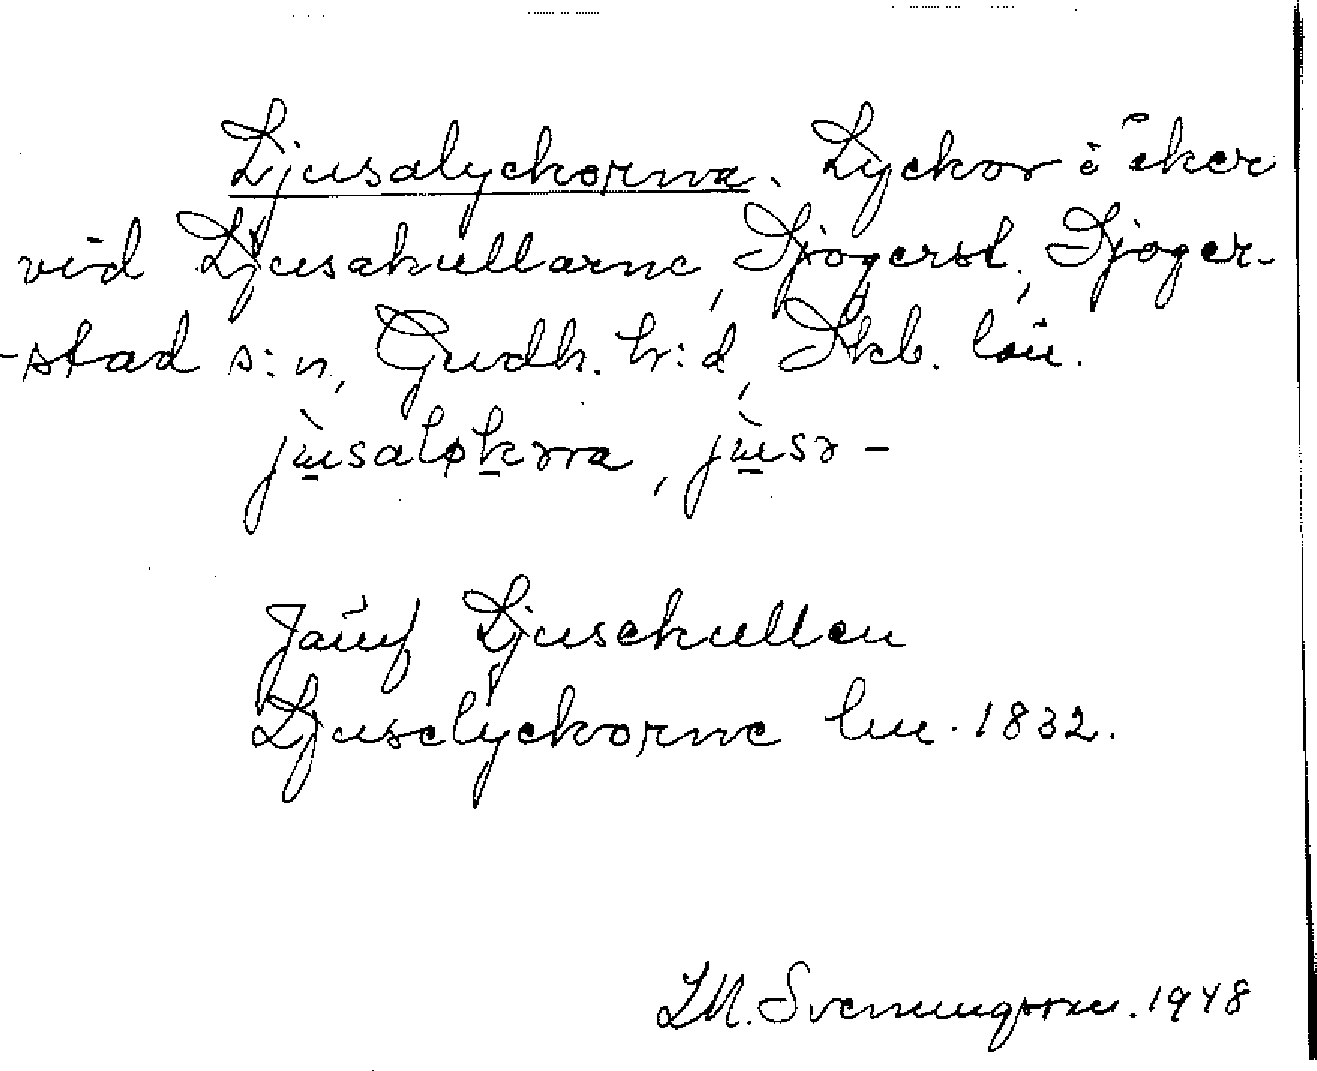 Ljusalyckorna. Lyckor i åker
vid Ljusakullarna, Sjögerst., Sjöger-
-stad s:n, Gudh. h:d, Skb. län.
jusaløkɔrna, jusɔ-
Jämf Ljusakullen
Ljusalyckorna lm. 1832.
LM. Svenungsson. 1948